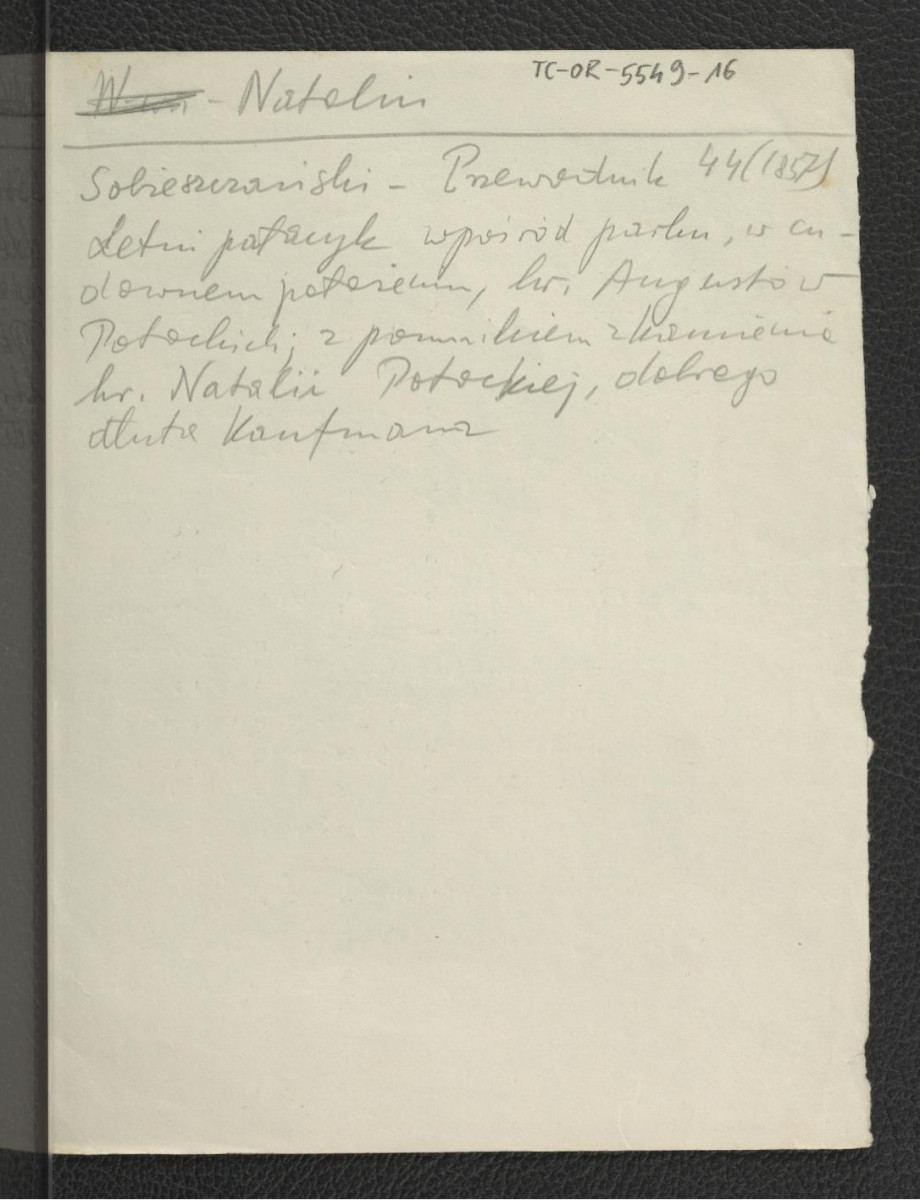 TC-OR-5549-16
- Natolin
Sobieszczański - Przewodnik 44 (1857)
Letni pałacyk wpośród parku, w cu-
downem położeniu, hr. Augustów
Potockich; z pomnikiem z kamienia
hr. Natalii Potockiej, dobrego
dłuta Kaufmana